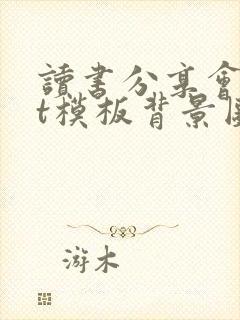 讀書分享會
t模板背景圖
游木